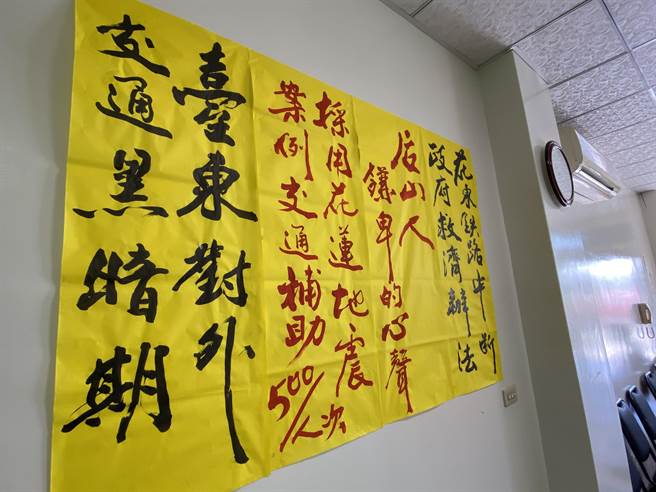 花東鉄路中斷
政府救濟辦法
后山人
鎌卑的心聲
採用花蓮地震
案例交通補助500/人次
臺東對外
交通黑暗期